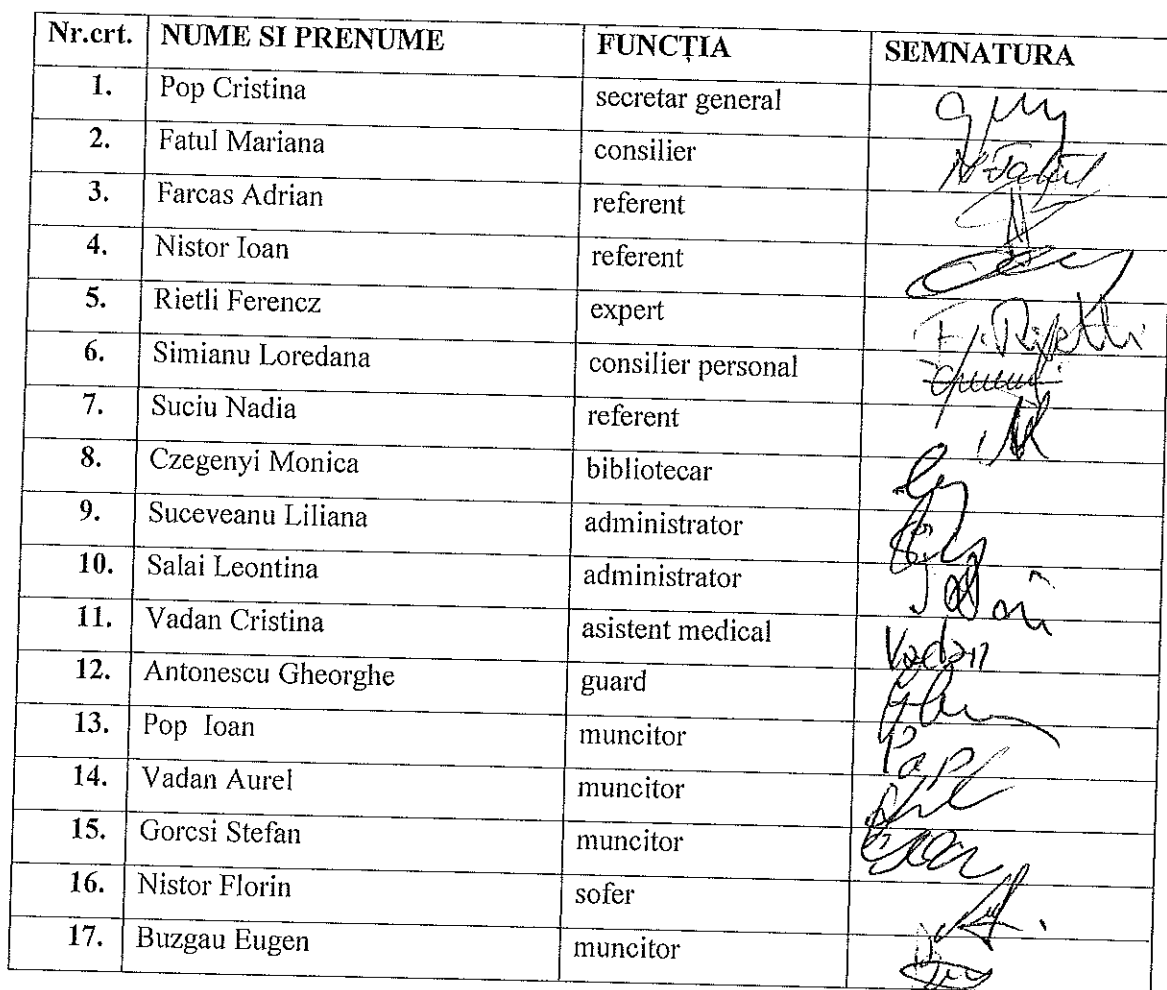 Nr.crt. NUME SI PRENUME FUNCȚIA SEMNATURA
1. Pop Cristina secretar general
2. Fatul Mariana consilier
3. Farcas Adrian referent
4. Nistor Ioan referent
5. Rietli Ferencz expert
6. Simianu Loredana consilier personal
7. Suciu Nadia referent
8. Czegenyi Monica bibliotecar
9. Suceveanu Liliana administrator
10. Salai Leontina administrator
11. Vadan Cristina asistent medical Vadan
12. Antonescu Gheorghe guard
13. Pop Ioan muncitor
14. Vadan Aurel muncitor
15. Gorcsi Stefan muncitor
16. Nistor Florin sofer
17. Buzgau Eugen muncitor